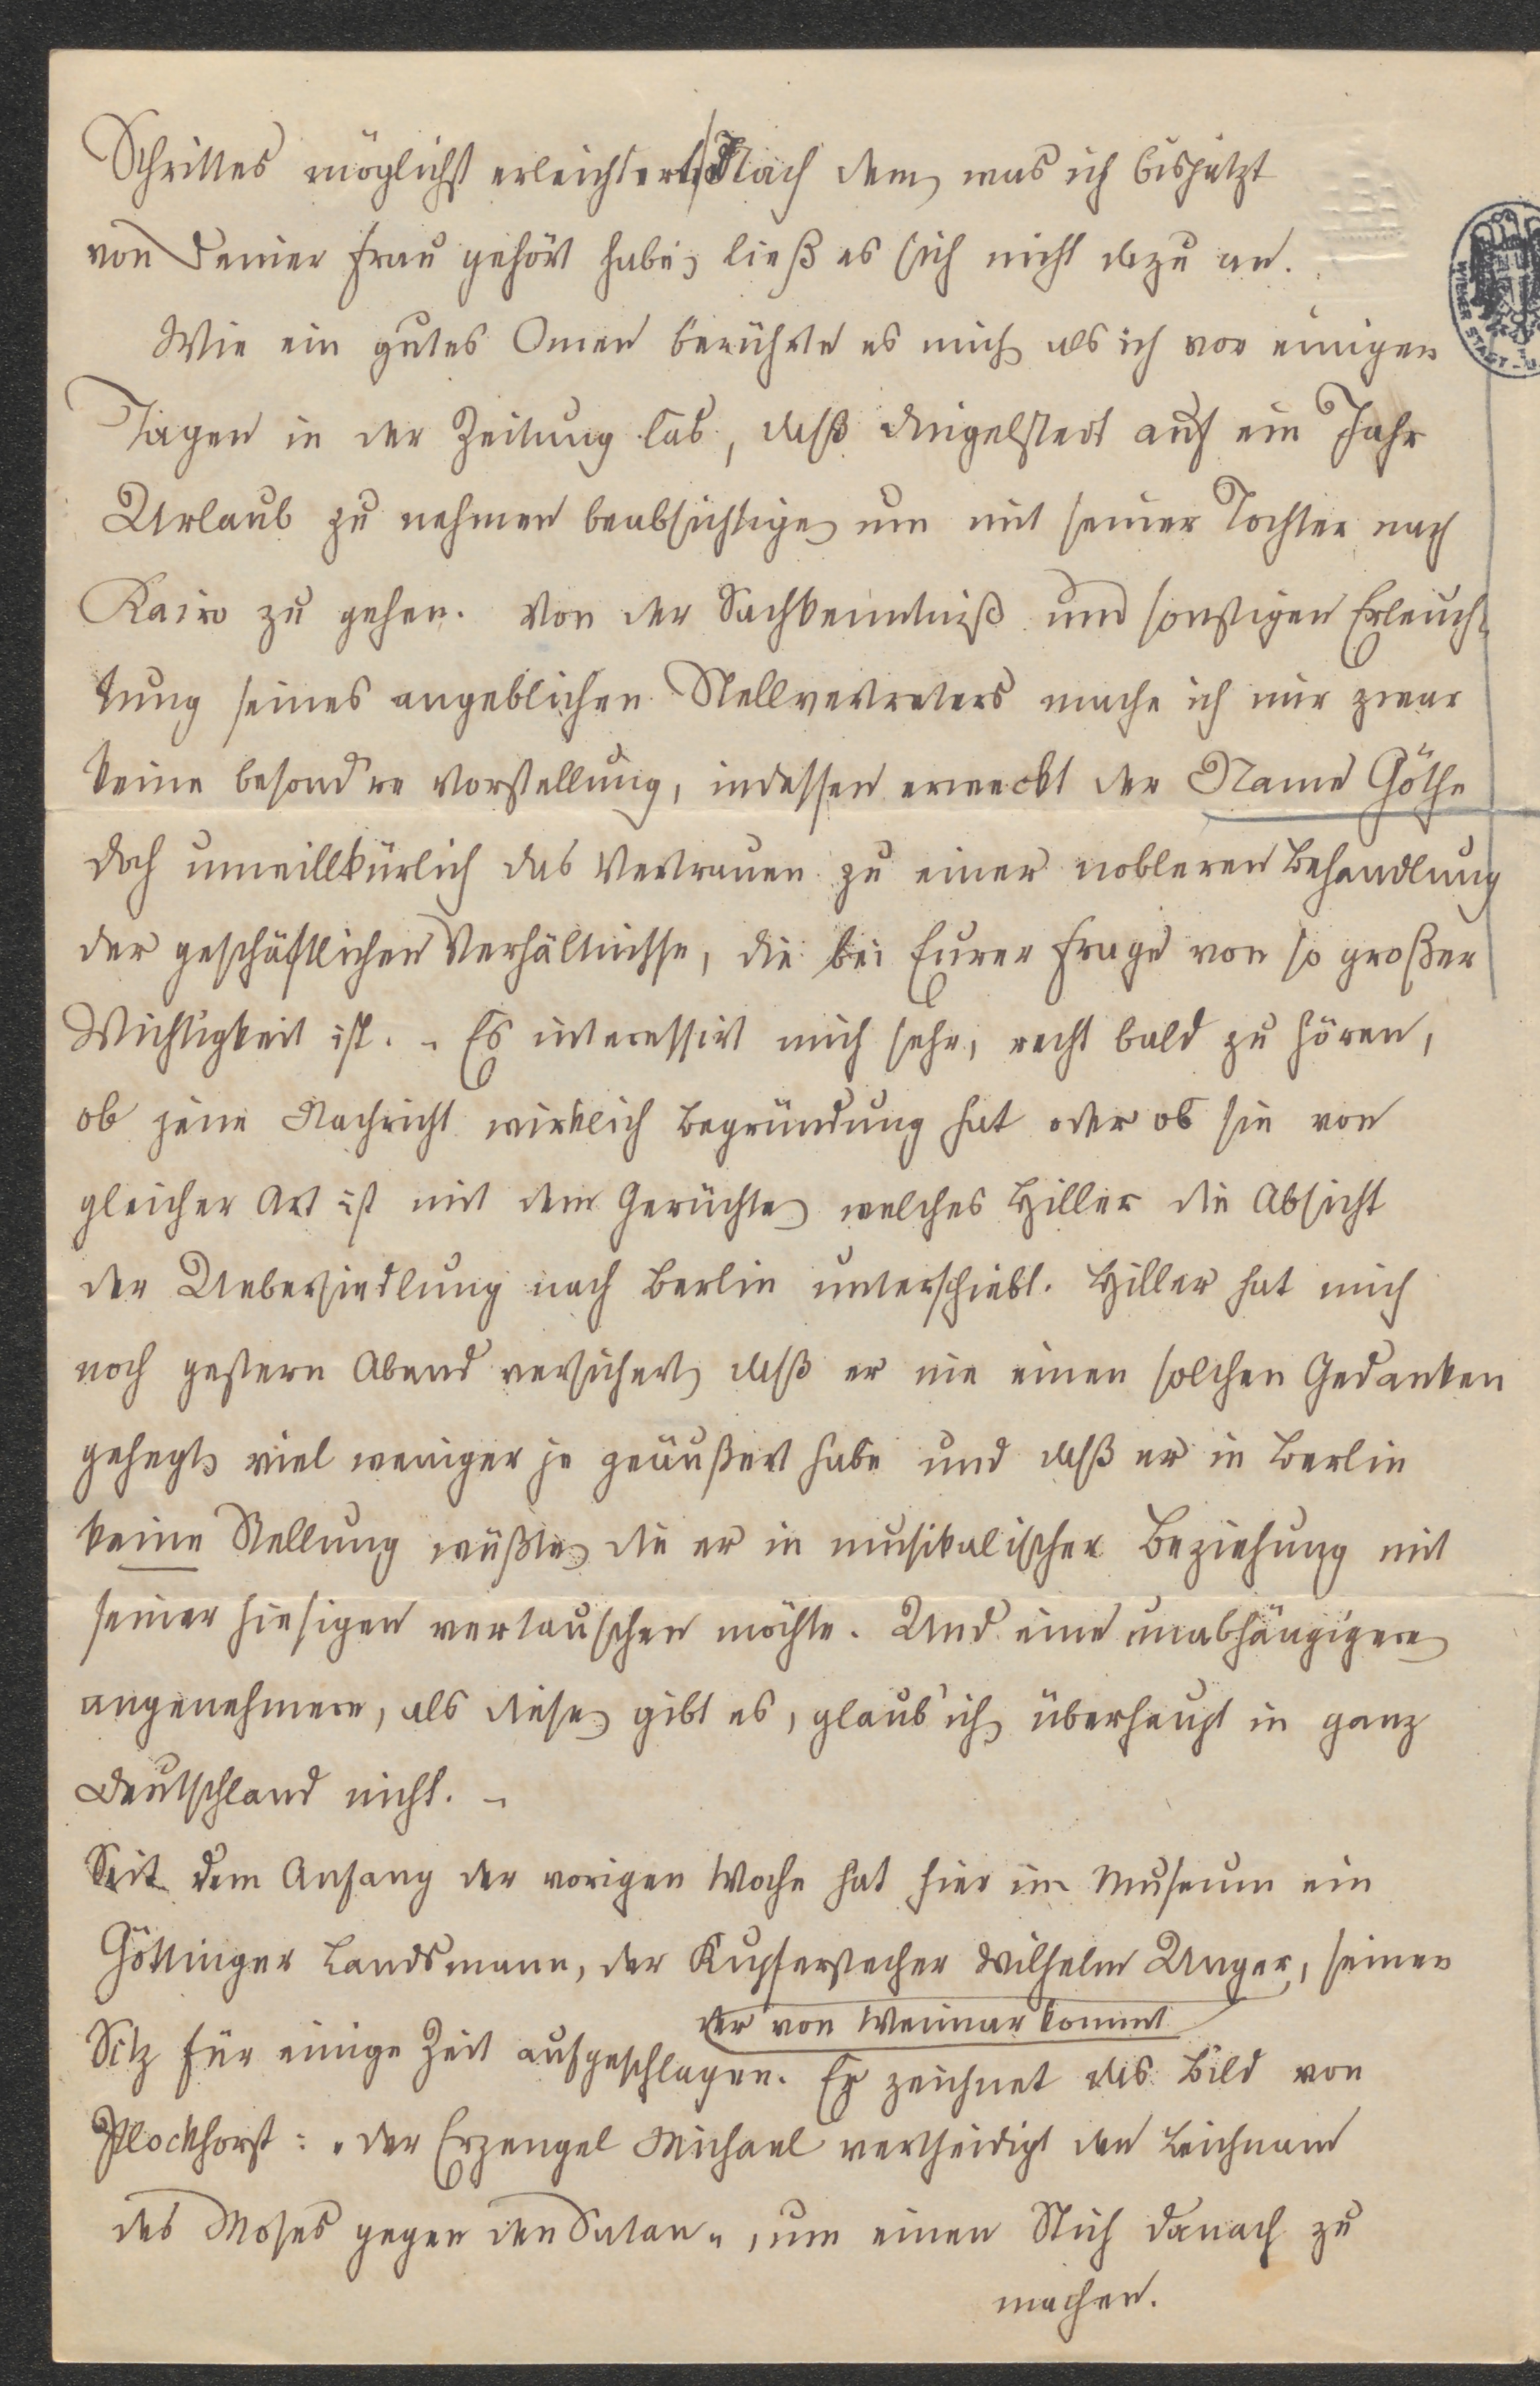 Schrittes möglichst erleichtert. Nach dem, was ich bisjetzt
von Deiner Frau gehört habe, ließ es sich nicht dazu an.
Wie ein gutes Omen berührte es mich, als ich vor einigen
Tagen in der Zeitung las, daß Dingelstedt auf ein Jahr
Urlaub zu nehmen beabsichtige, um mit seiner Tochter nach
Kairo zu gehen. Von der Sachkenntniß und sonstigen Erleuch-
tung seines angeblichen Stellvertreters mache ich mir zwar
keine besond're Vorstellung, indessen erweckt der Name Göthe
doch unwillkürlich das Vertrauen zu einer nobleren Behandlung
der geschäftlichen Verhältnisse, die bei Eurer Frage von so großer
Wichtigkeit ist. - Es interessirt mich sehr, recht bald zu hören,
ob jene Nachricht wirklich Begründung hat oder ob sie von
gleicher Art ist mit dem Gerüchte, welches Hiller die Absicht
der Uebersiedlung nach Berlin unterschiebt. Hiller hat mich
noch gestern Abend versichert, daß er nie einen solchen Gedanken
gehegt, viel weniger je geäußert habe und daß er in Berlin
keine Stellung wüßte, die er in musikalischer Beziehung mit
seiner hiesigen vertauschen möchte. Und eine unabhängigere,
angenehmere, als diese, gibt es, glaub' ich, überhaupt in ganz
Deutschland nicht. -
Seit dem Anfang der vorigen Woche hat hier im Museum ein
Göttinger Landsmann, der Kupferstecher Wilhelm Unger, seinen
der von Weimar kommt
Sitz für einige Zeit aufgeschlagen. Er zeichnet das Bild von
Plockhorst: „der Erzengel Michael vertheidigt den Leichnam
des Moses gegen den Satan", um einen Stich danach zu
machen.
WIENER STADT-U.